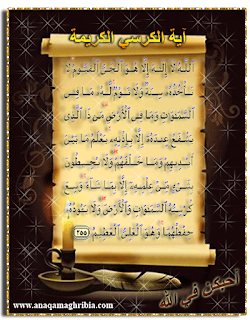 آية الكرسي الكريمة
ٱللَّهُ لَآ إِلَٰهَ إِلَّا هُوَ ٱلْحَىُّ ٱلْقَيُّومُ لَا
تَأْخُذُهُۥ سِنَةٌ وَلَا نَوْمٌ لَّهُۥ مَا فِى
ٱلسَّمَٰوَٰتِ وَمَا فِى ٱلْأَرْضِ مَن ذَا ٱلَّذِى
يَشْفَعُ عِندَهُۥٓ إِلَّا بِإِذْنِهِۦ يَعْلَمُ مَا بَيْنَ
أَيْدِيهِمْ وَمَا خَلْفَهُمْ وَلَا يُحِيطُونَ
بِشَىْءٍ مِّنْ عِلْمِهِۦٓ إِلَّا بِمَا شَآءَ وَسِعَ
كُرْسِيُّهُ ٱلسَّمَٰوَٰتِ وَٱلْأَرْضَ وَلَا يَـُٔودُهُۥ
حِفْظُهُمَا وَهُوَ ٱلْعَلِىُّ ٱلْعَظِيمُ ٢٥٥
أحبكن في الله
www.anaqamaghribia.com